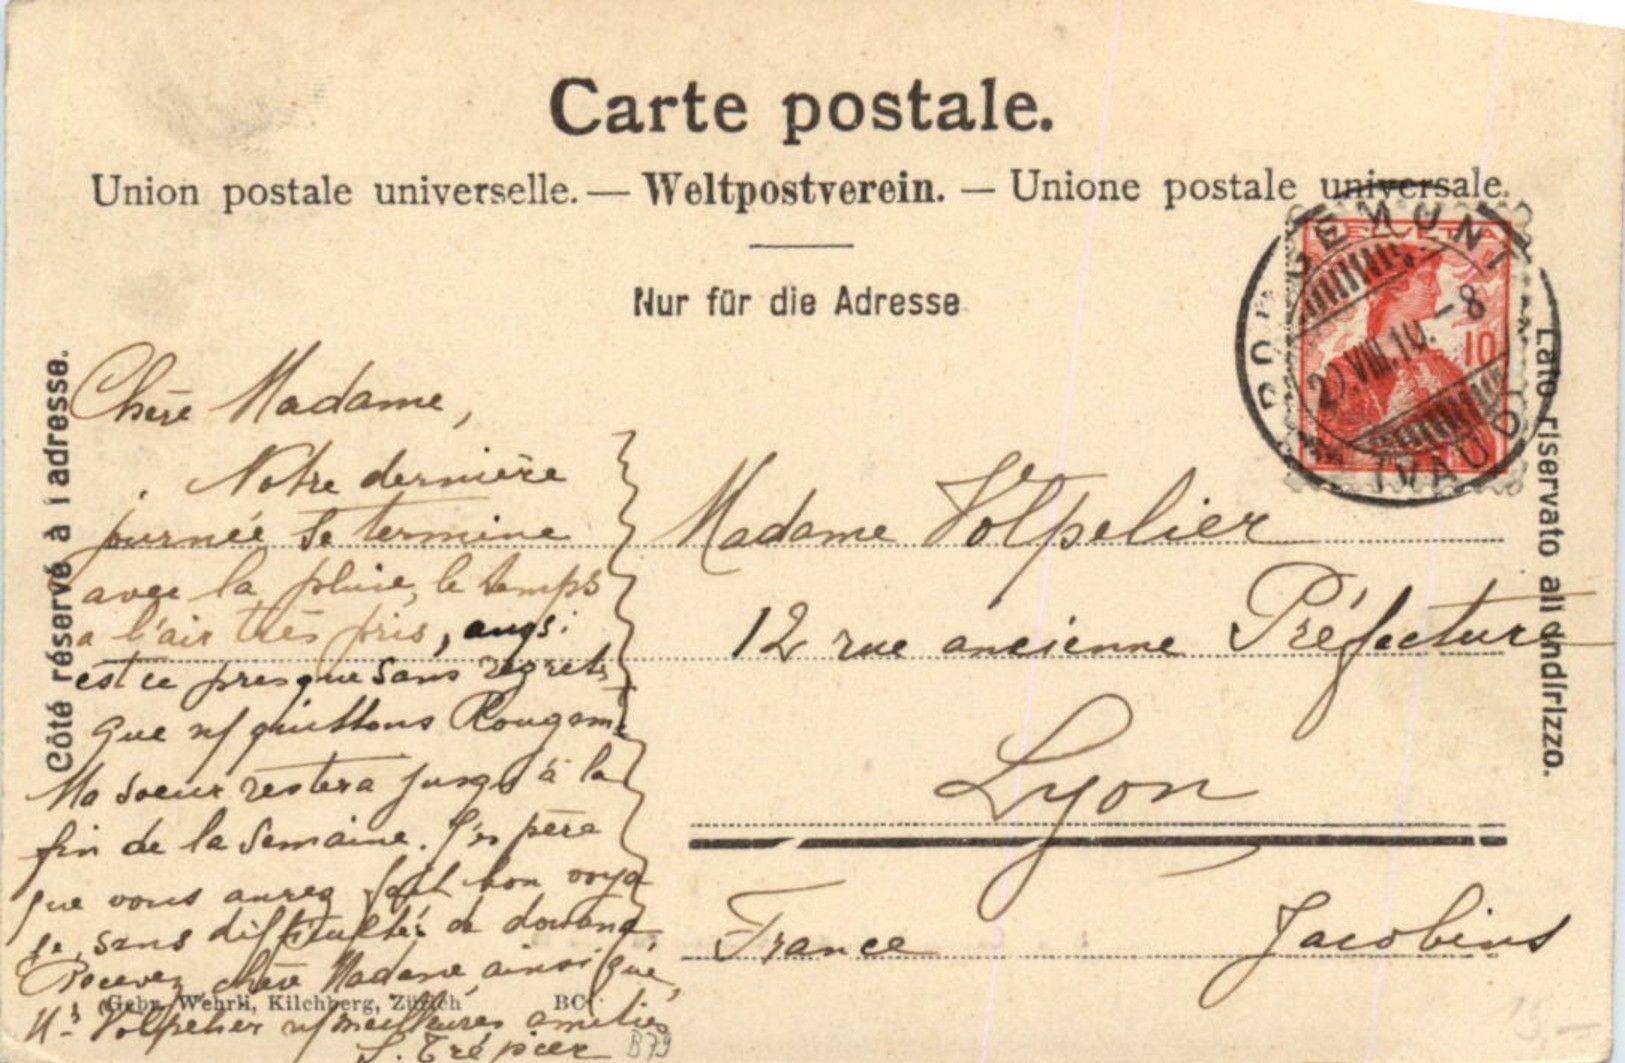 Carte postale.
Union postale universelle. — Weltpostverein. — Unione postale universale.
Nur für die Adresse
Côté réservé à l adresse.
Lato riservato all indirizzo.
ROUGEMONT
(VAUD)
VIII.10.-8
HELVETIA
10
Chère Madame,
Notre dernière
journée se termine
avec la pluie, le temps
a l'air très pris, aussi
est ce presque sans regrets
que n/ quittons Rougemt
Ma soeur restera jusqu'à la
fin de la semaine. J'espère
que vous aurez fait bon voya
ge, sans difficultés de douane
Recevez, chère Madame, ainsi que
Mr Volpelier n/ meilleures amitiés
S. Trépier
Madame Volpelier
12 rue ancienne Préfecture
Lyon
France Jacobins
Gebr. Wehrli, Kilchberg, Zürich BC
B79
15,-